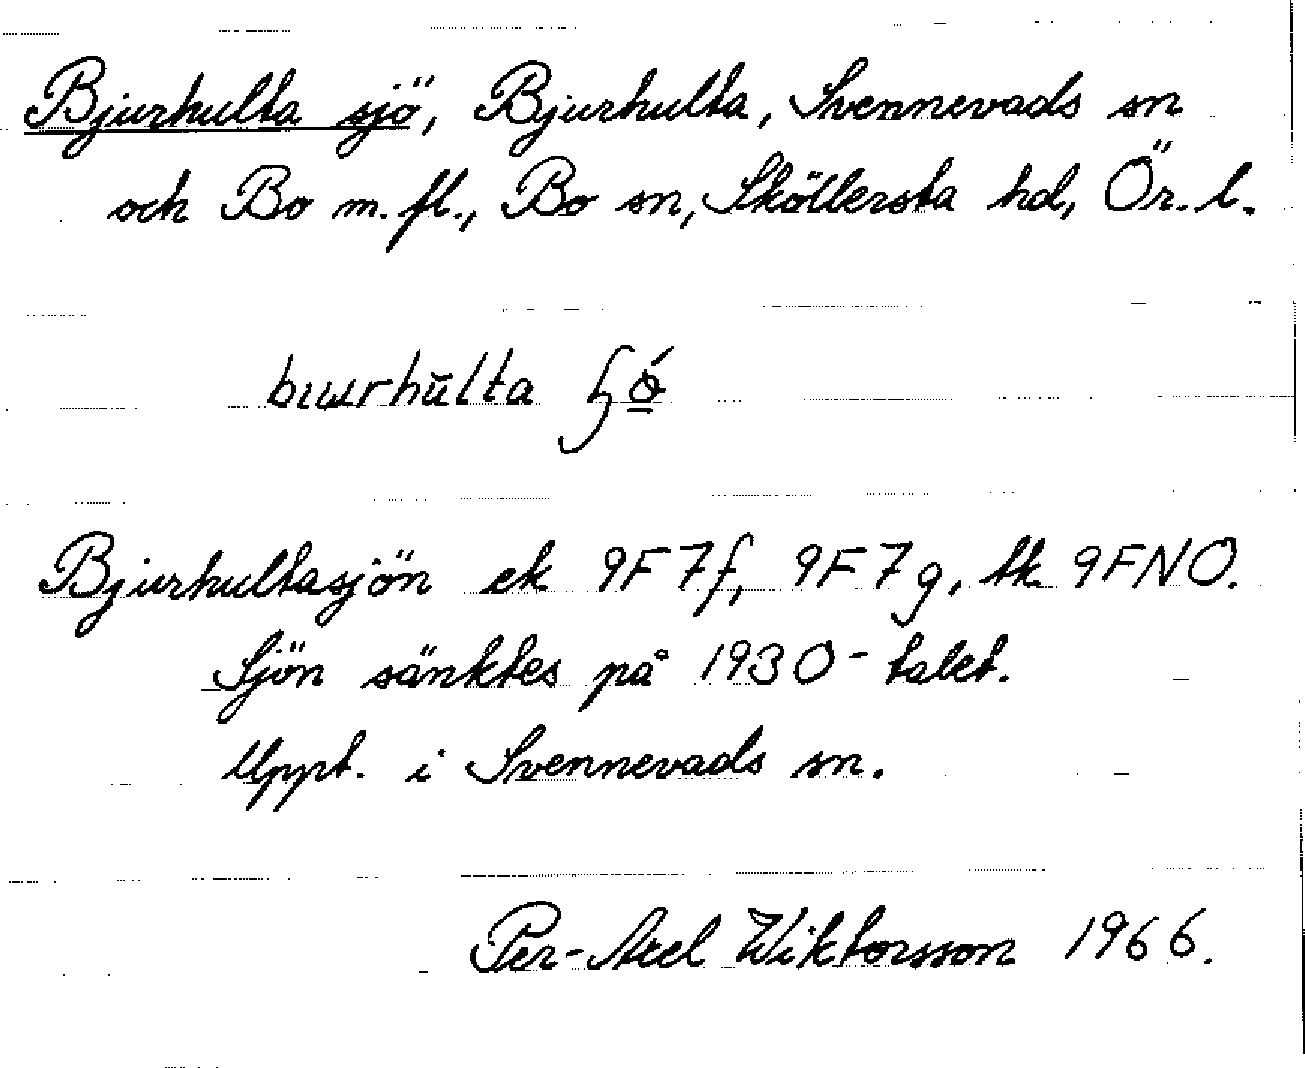 Bjurhulta sjö, Bjurhulta, Svennevads sn
och Bo m. fl., Bo sn, Sköllersta hd, Ör. l.
Bjurhultasjön ek 9F7f, 9F7g, tk 9FNO.
Sjön sänktes på 1930-talet.
Uppt. i Svennevads sn.
Per-Axel Wiktorsson 1966.